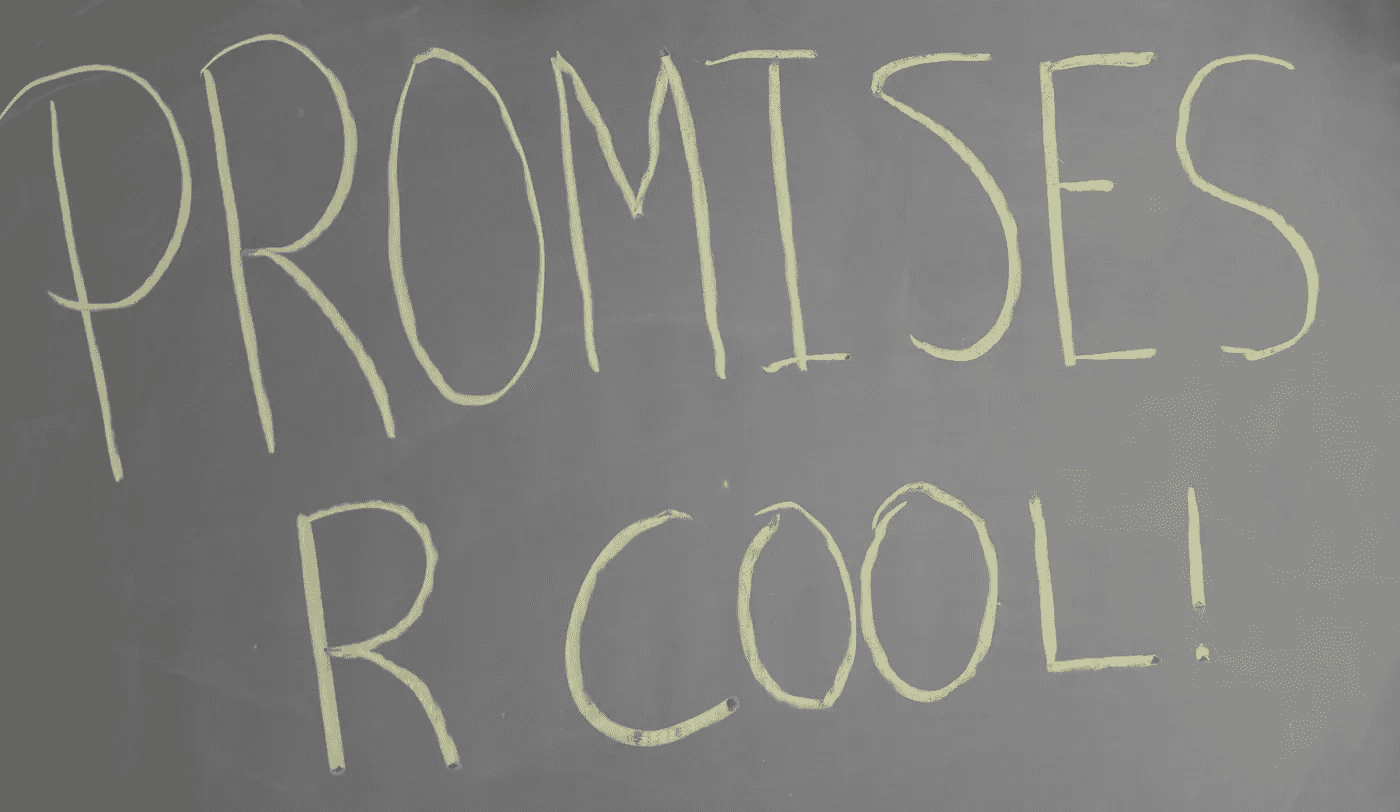 PROMISES
R COOL!